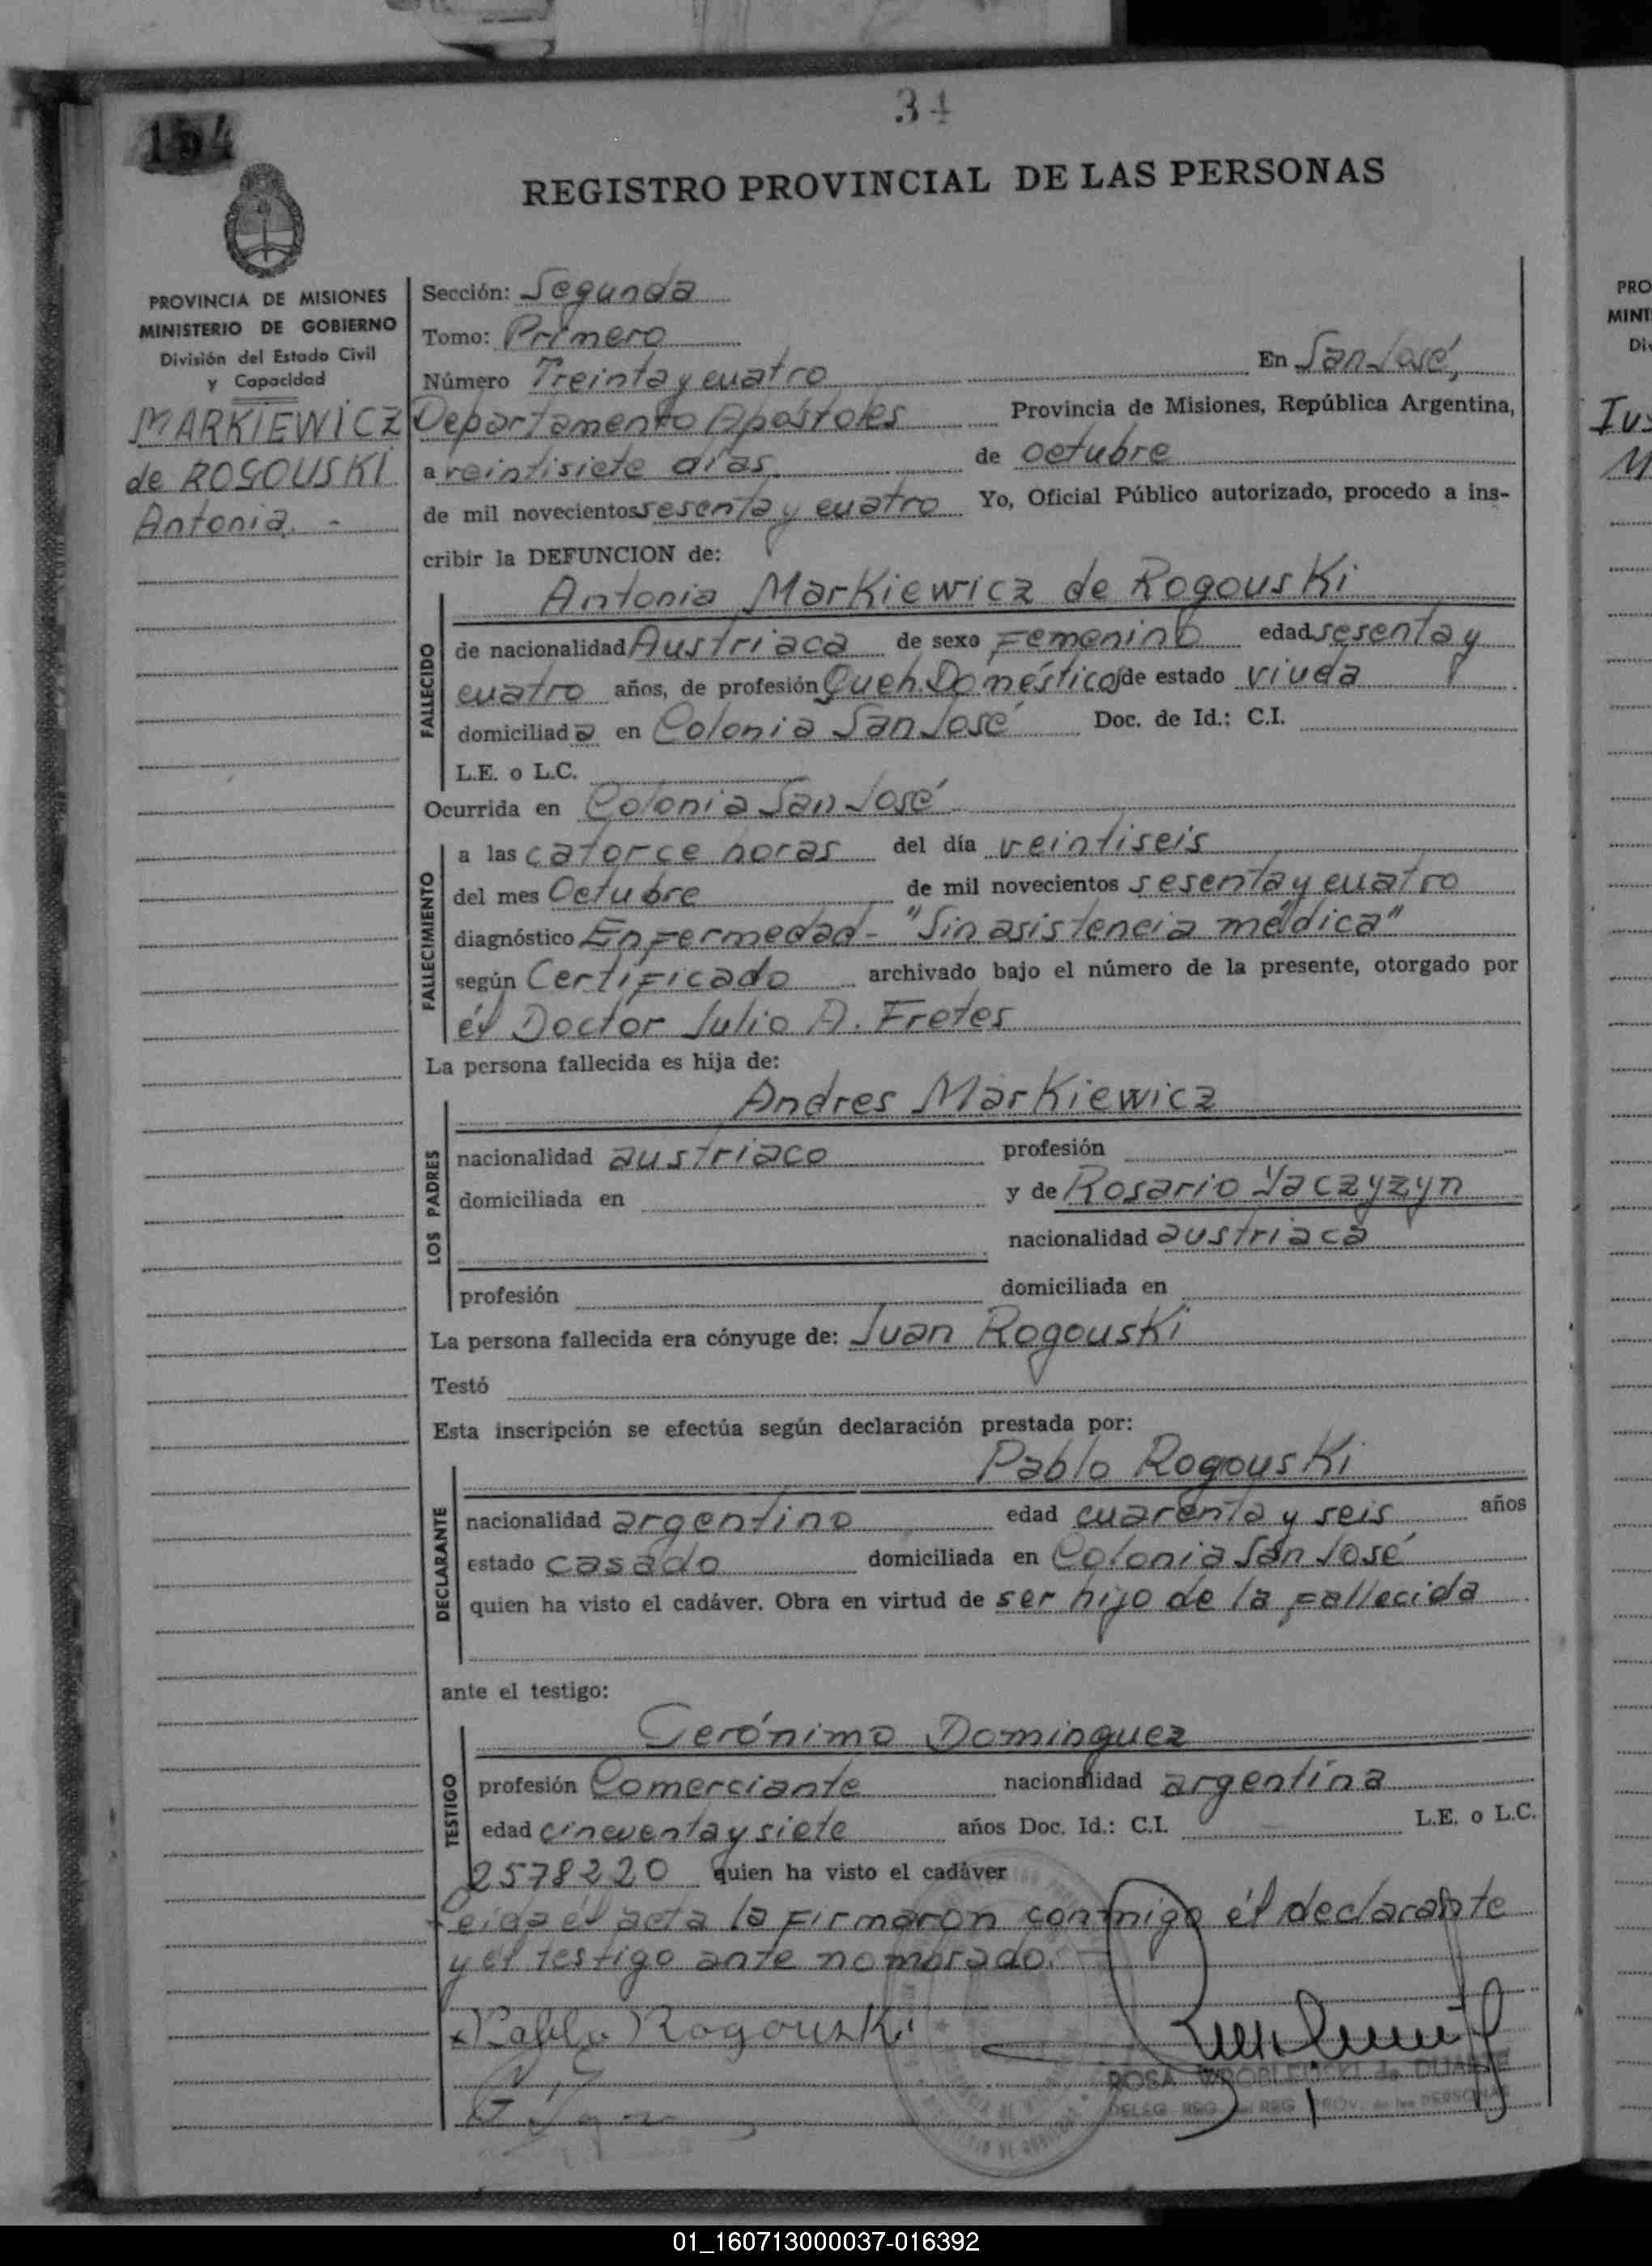 34
154
REGISTRO PROVINCIAL DE LAS PERSONAS
PROVINCIA DE MISIONES
MINISTERIO DE GOBIERNO
División del Estado Civil
y Capacidad
MARKIEWICZ
de ROGOUSKI
Antonia. -
Sección: Segunda
Tomo: Primero
Número Treinta y cuatro En San José,
Departamento Apóstoles Provincia de Misiones, República Argentina,
a veintisiete días de octubre
de mil novecientos sesenta y cuatro Yo, Oficial Público autorizado, procedo a ins-
cribir la DEFUNCION de:
Antonia Markiewicz de Rogouski
FALLECIDO
de nacionalidad Austriaca de sexo Femenino edad sesenta y
cuatro años, de profesión Queh. Domésticos de estado viuda
domiciliada en Colonia San José Doc. de Id.: C.I.
L.E. o L.C.
Ocurrida en Colonia San José
FALLECIMIENTO
a las catorce horas del día veintiseis
del mes Octubre de mil novecientos sesenta y cuatro
diagnóstico Enfermedad - "Sin asistencia médica"
según Certificado archivado bajo el número de la presente, otorgado por
él Doctor Julio A. Fretes
La persona fallecida es hija de:
Andres Markiewicz
LOS PADRES
nacionalidad austriaco profesión
domiciliada en y de Rosario Yaczyzyn
nacionalidad austriaca
profesión domiciliada en
La persona fallecida era cónyuge de: Juan Rogouski
Testó
Esta inscripción se efectúa según declaración prestada por:
Pablo Rogouski
DECLARANTE
nacionalidad argentino edad cuarenta y seis años
estado casado domiciliada en Colonia San José
quien ha visto el cadáver. Obra en virtud de ser hijo de la fallecida
ante el testigo:
Gerónimo Dominguez
TESTIGO
profesión Comerciante nacionalidad argentina
edad cincuenta y siete años Doc. Id.: C.I. L.E. o L.C.
2578220 quien ha visto el cadáver
Leida él acta la firmaron conmigo él declarante
y él testigo ante nombrado. -
x Pablo Rogouski
ROSA WROBLEWSKI de DUARTE
DELEG. REG. del REG. PROV. de las PERSONAS
PRO
MINI
Di
01_160713000037-016392